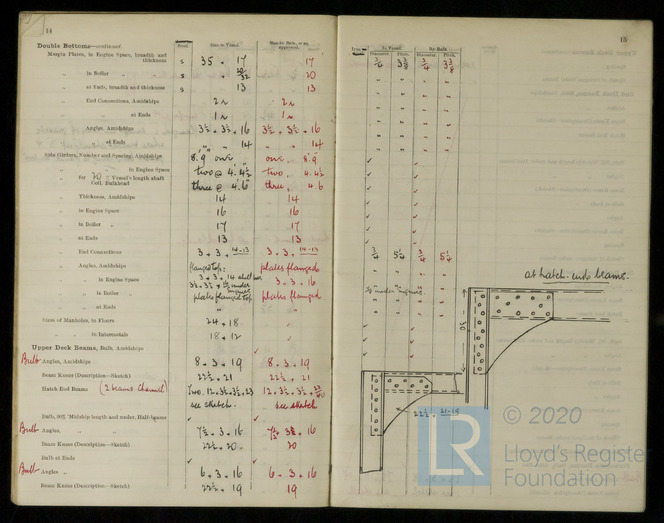 14
Double Bottoms—continued. Steel. Size in Vessel. Size in Rule, or as approved.
Margin Plates, in Engine Space, breadth and thickness s 35 × 17 17
„ in Boiler „ s 20 20
„ at Ends, breadth and thickness s 13 13
End Connections, Amidships 2r 2r
„ at Ends 1r 1r
Angles, Amidships 3½ × 3½ × 16 3½ × 3½ × 16
„ at Ends „ „ 14 „ „ 14
Side Girders, Number and Spacing, Amidships 8.9 one 8.9
„ in Engine Space two @ 4.4½ two 4.4½
„ for 20 % Vessel's length abaft Coll. Bulkhead three @ 4.6 three 4.6
Thickness, Amidships 14 14
„ in Engine Space 16 16
„ in Boiler „ 17 17
„ at Ends 13 13
End Connections 3 × 3 × 14-13 3 × 3 × 14-13
„ Angles, Amidships flanged top plates flanged
„ in Engine Space 3 × 3 × 14 3 × 3 × 16
„ in Boiler „ plates flanged top plates flanged
„ at Ends
Sizes of Manholes, in Floors 24 × 18
„ in Intercostals 18 × 12
Upper Deck Beams, Bulb, Amidships
Bulb Angles, Amidships 8 × 3 × 19 8 × 3 × 19
Beam Knees (Description—Sketch) 22½ × 21 22½ × 21
Hatch End Beams (2 beams Channel) Two 12 × 3½ × 3½ × 23 12 × 3½ × 3½
see sketch. see sketch
Bulb, 80% Midship length and under, Half-beams
Bulb Angles, „ 7½ × 3 × 16 7½ 16
Beam Knees (Description—Sketch) 22½ × 20 20
Bulb at Ends
Bulb Angles „ 6 × 3 × 16 6 × 3 × 16
Beam Knees (Description—Sketch) 22½ × 19 19
15
In Vessel. By Rule
Diameter. Pitch. Diameter. Pitch.
¾ 3⅜ ¾ 3⅜
¾ 5¼ ¾ 5¼
under engines
at hatch end beams.
22½ × 21-19
© 2020
LR
Lloyd's Register
Foundation